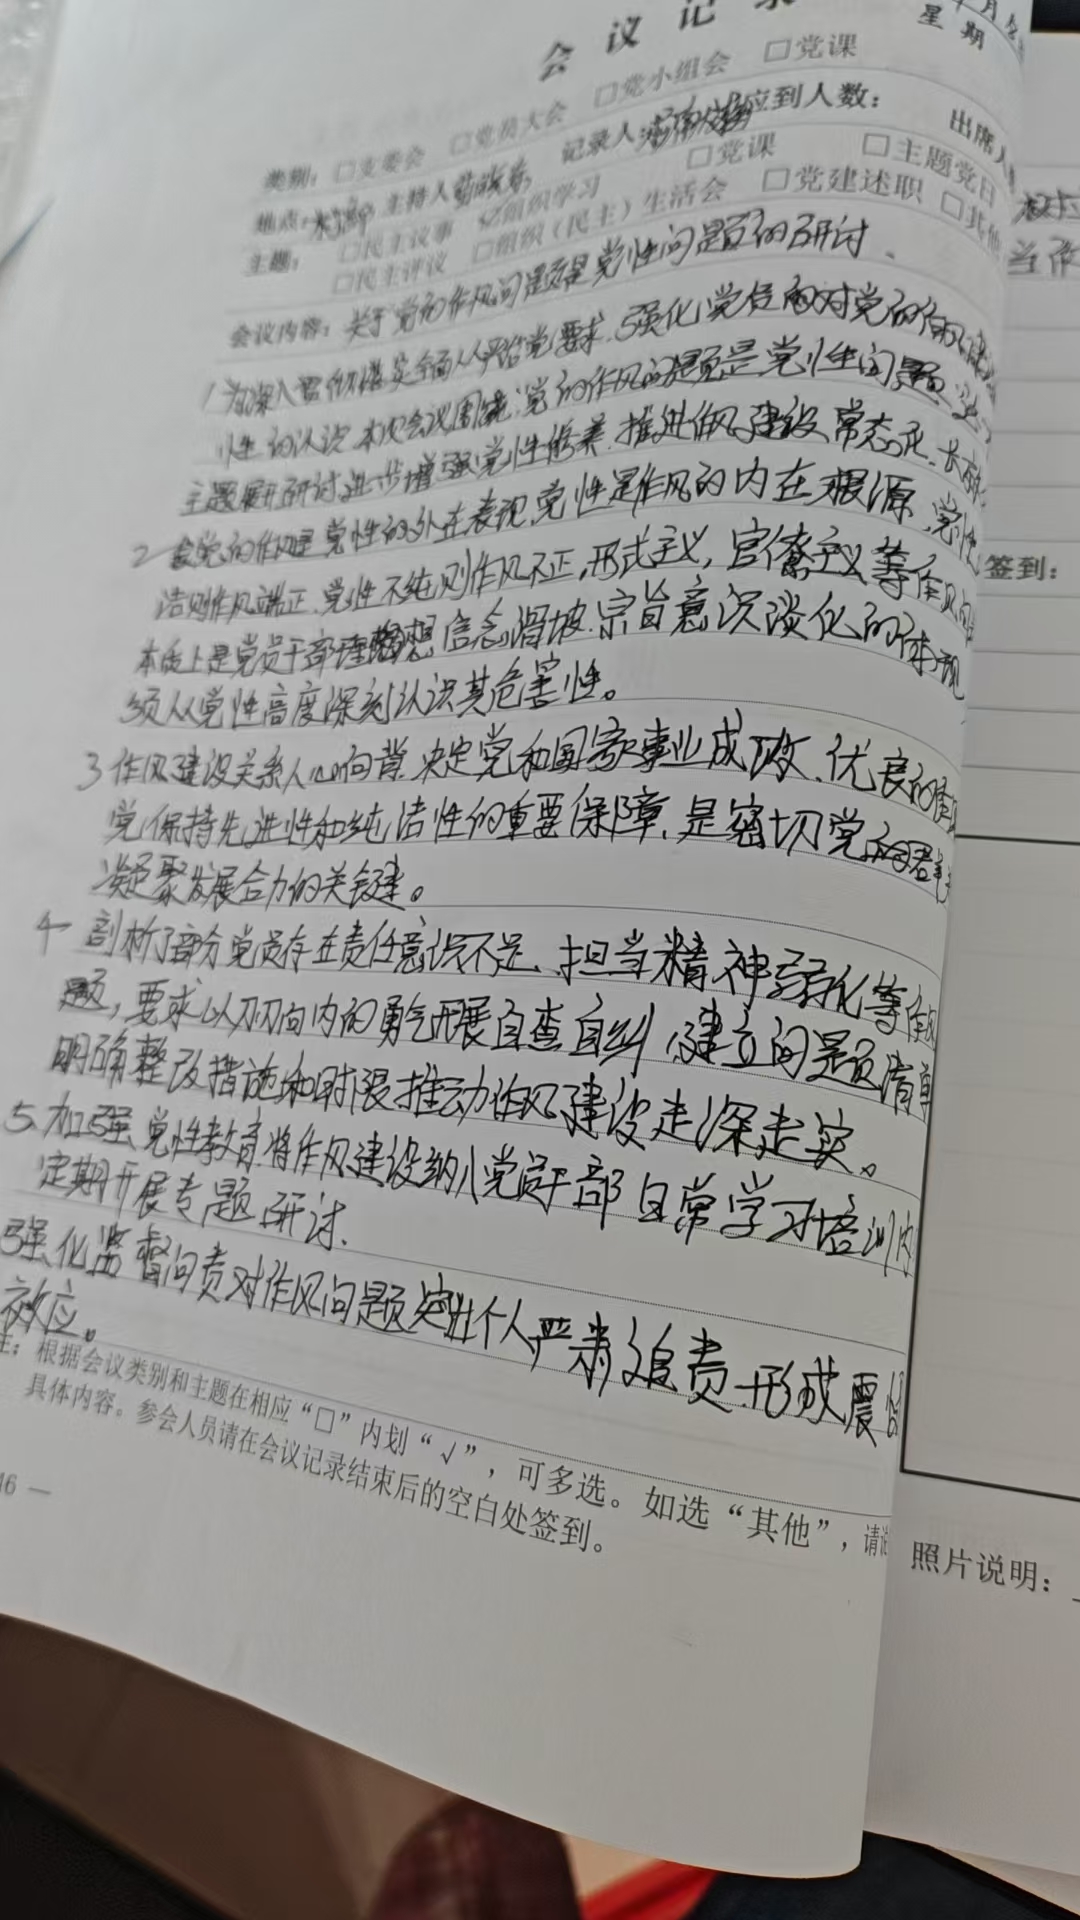 会议记录
月
星期
类别：□支委会 □党员大会 □党小组会 □党课
地点： 主持人 记录人 应到人数： 出席人
主题： □民主议事 ☑组织学习 □党课 □主题党日
□民主评议 □组织（民主）生活会 □党建述职 □其他
会议内容：关于党的作风问题是党性问题的研讨、
1为深入贯彻落实全面从严治党要求、强化党员 对党的作风
性的认识 本次会议围绕“党的作风问题是党性问题”
主题展开研讨进一步增强党性修养、推进作风建设常态化、长
2 党的作风是党性的外在表现，党性是作风的内在根源，党性
洁则作风端正、党性不纯则作风不正，形式主义，官僚主义等作风
本质上是党员干部理想信念滑坡、宗旨意识淡化的体现
须从党性高度深刻认识其危害性。
3 作风建设关系人心向背 决定党和国家事业成败、优良的作风
党保持先进性和纯洁性的重要保障、是密切党和群
凝聚发展合力的关键。
4 剖析了部分党员存在责任意识不足、担当精神弱化等作风
题，要求以刀刃向内的勇气开展自查自纠，建立问题清单
明确整改措施和时限推动作风建设走深走实。
5.加强党性教育、将作风建设纳入党员干部日常学习培训内
定期开展专题研讨、
强化监督问责对作风问题突出个人严肃追责 形成震
效应。
注：根据会议类别和主题在相应“□”内划“√”，可多选。如选“其他”，请
具体内容。参会人员请在会议记录结束后的空白处签到。
16 —
签到：
照片说明：